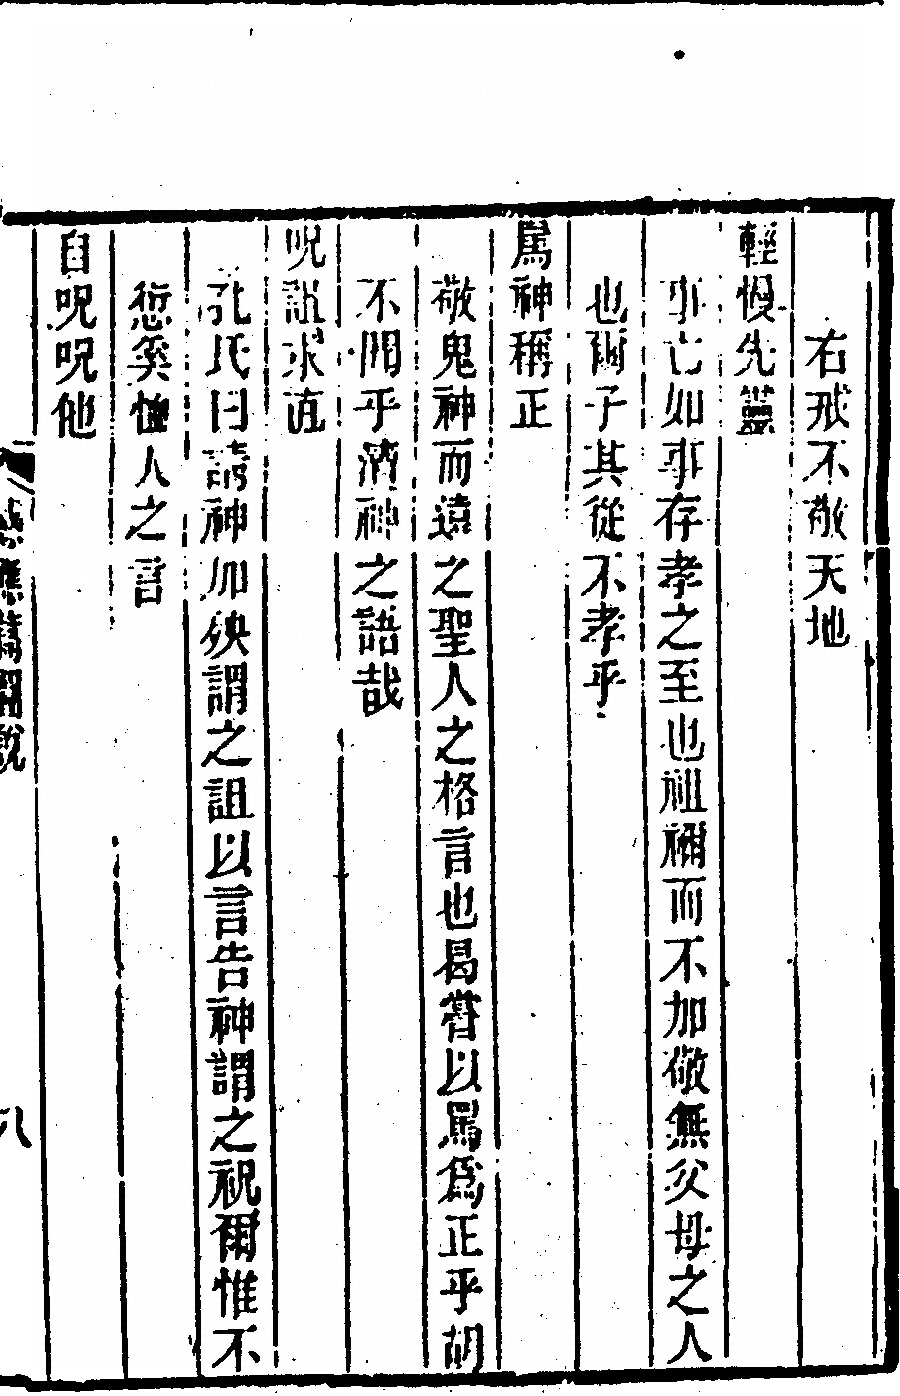 右戒不敬天地
輕慢先靈
事亡如事存孝之至也祖禰而不加敬無父母之人
也爾子其從不孝乎
罵神稱正
敬鬼神而遠之聖人之格言也曷嘗以罵爲正乎胡
不聞乎瀆神之語哉
呪詛求直
孔氏曰請神加殃謂之詛以言告神謂之祝爾惟不
愆奚恤人之言
自呪呪他
感應篇圖說
八